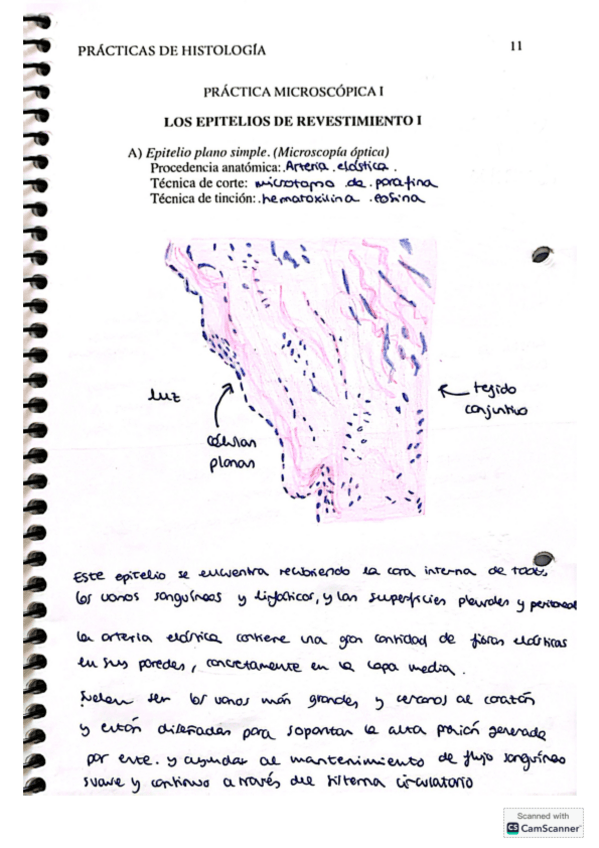 PRÁCTICAS DE HISTOLOGÍA
11
PRÁCTICA MICROSCÓPICA I
LOS EPITELIOS DE REVESTIMIENTO I
A) Epitelio plano simple. (Microscopía óptica)
Procedencia anatómica: Arteria elástica.
Técnica de corte: microtomo de parafina
Técnica de tinción: hematoxilina eosina
luz
células
planas
tejido
conjuntivo
Este epitelio se encuentra recubriendo la cara interna de todos
los vasos sanguíneos y linfáticos, y las superficies pleurales y peritoneal
La arteria elástica contiene una gran cantidad de fibras elásticas
en sus paredes, concretamente en la capa media.
Suelen ser los vasos más grandes y cercanos al corazón
y están diseñadas para soportar la alta presión generada
por este. y ayudar al mantenimiento de flujo sanguíneo
suave y continuo a través del sistema circulatorio
Scanned with
CS CamScanner